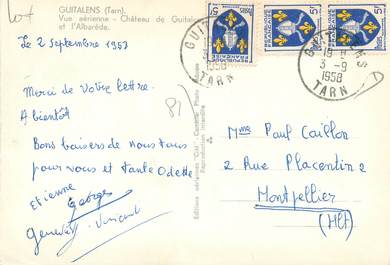 Lot
GUITALENS (Tarn).
Vue aérienne - Château de Guitalens
et l'Albarède.
Le 2 Septembre 1953
Merci de Votre lettre.
A bientôt
Bons baisers de nous tous
pour vous et tante Odette
Etienne
George
Geneviève Vincent
81
Editions aériennes "Cité" Combier
Reproduction interdite
REPUBLIQUE FRANÇAISE 5F
REPUBLIQUE FRANÇAISE 5F
REPUBLIQUE FRANÇAISE 5F
GUITALENS
1958
TARN
GUITALENS
3-9
1958
TARN
Mme Paul Caillon
2 Rue Placentin 2
Montpellier
(Hlt)